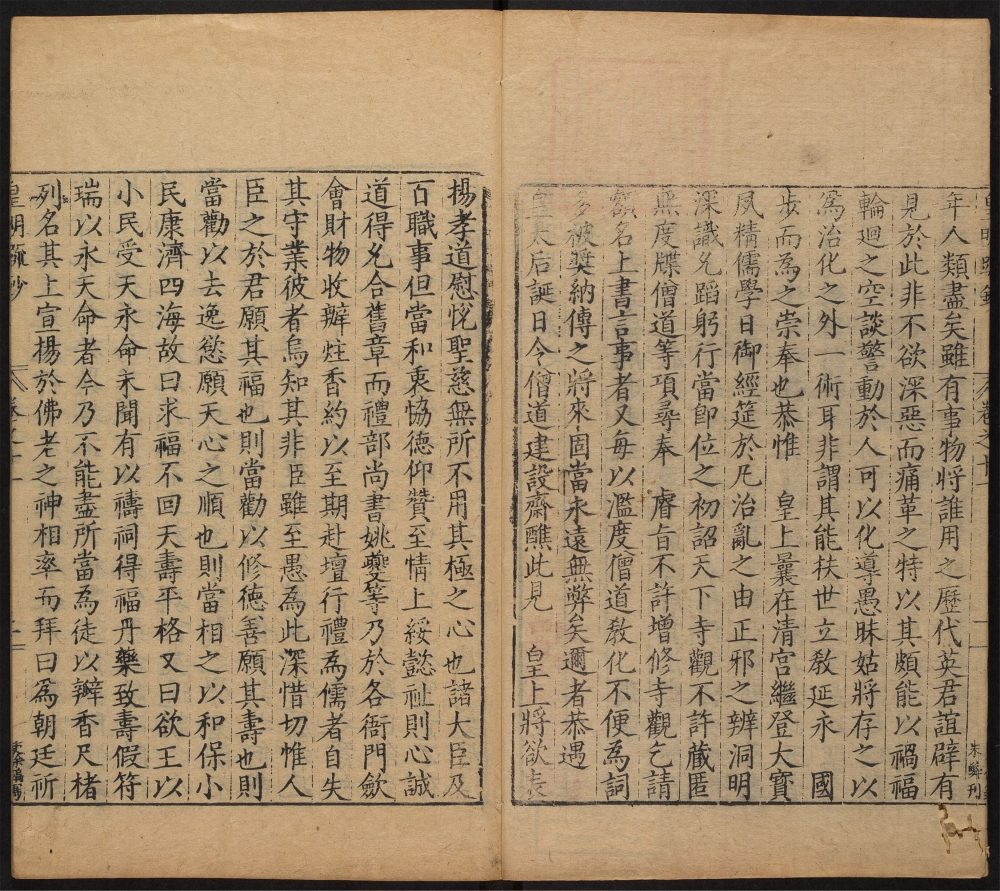 年人類盡矣雖有事物將誰用之歷代英君誼辟有
見於此非不欲深惡而痛革之特以其頗能以禍福
輪迴之空談警動於人可以化導愚昧姑將存之以
為治化之外一術耳非謂其能扶世立教延永 國
步而為之崇奉也恭惟 皇上曩在清宮繼登大寶
夙精儒學日御經筵於凡治亂之由正邪之辨洞明
深識允蹈躬行當即位之初詔天下寺觀不許藏匿
無度牒僧道等項尋奉 睿旨不許增修寺觀乞請
額名上書言事者又每以濫度僧道教化不便為詞
多被獎納傳之將來固當永遠無弊矣邇者恭遇
皇太后誕日今僧道建設齋醮此見 皇上將欲表
朱
刊
揚孝道慰悅聖慈無所不用其極之心也諸大臣及
百職事但當和衷恊德仰贊至情上綏懿祉則心誠
道得允合舊章而禮部尚書姚夔等乃於各衙門斂
會財物收辦炷香約以至期赴壇行禮為儒者自失
其守業彼者烏知其非臣雖至愚為此深惜切惟人
臣之於君願其福也則當勸以修德善願其壽也則
當勸以去逸慾願天心之順也則當相之以和保小
民康濟四海故曰求福不回天壽平格又曰欲王以
小民受天永命未聞有以禱祠得福丹藥致壽假符
瑞以永天命者今乃不能盡所當為徒以瓣香尺楮
列名其上宣揚於佛老之神相率而拜曰為朝廷祈
皇明疏鈔